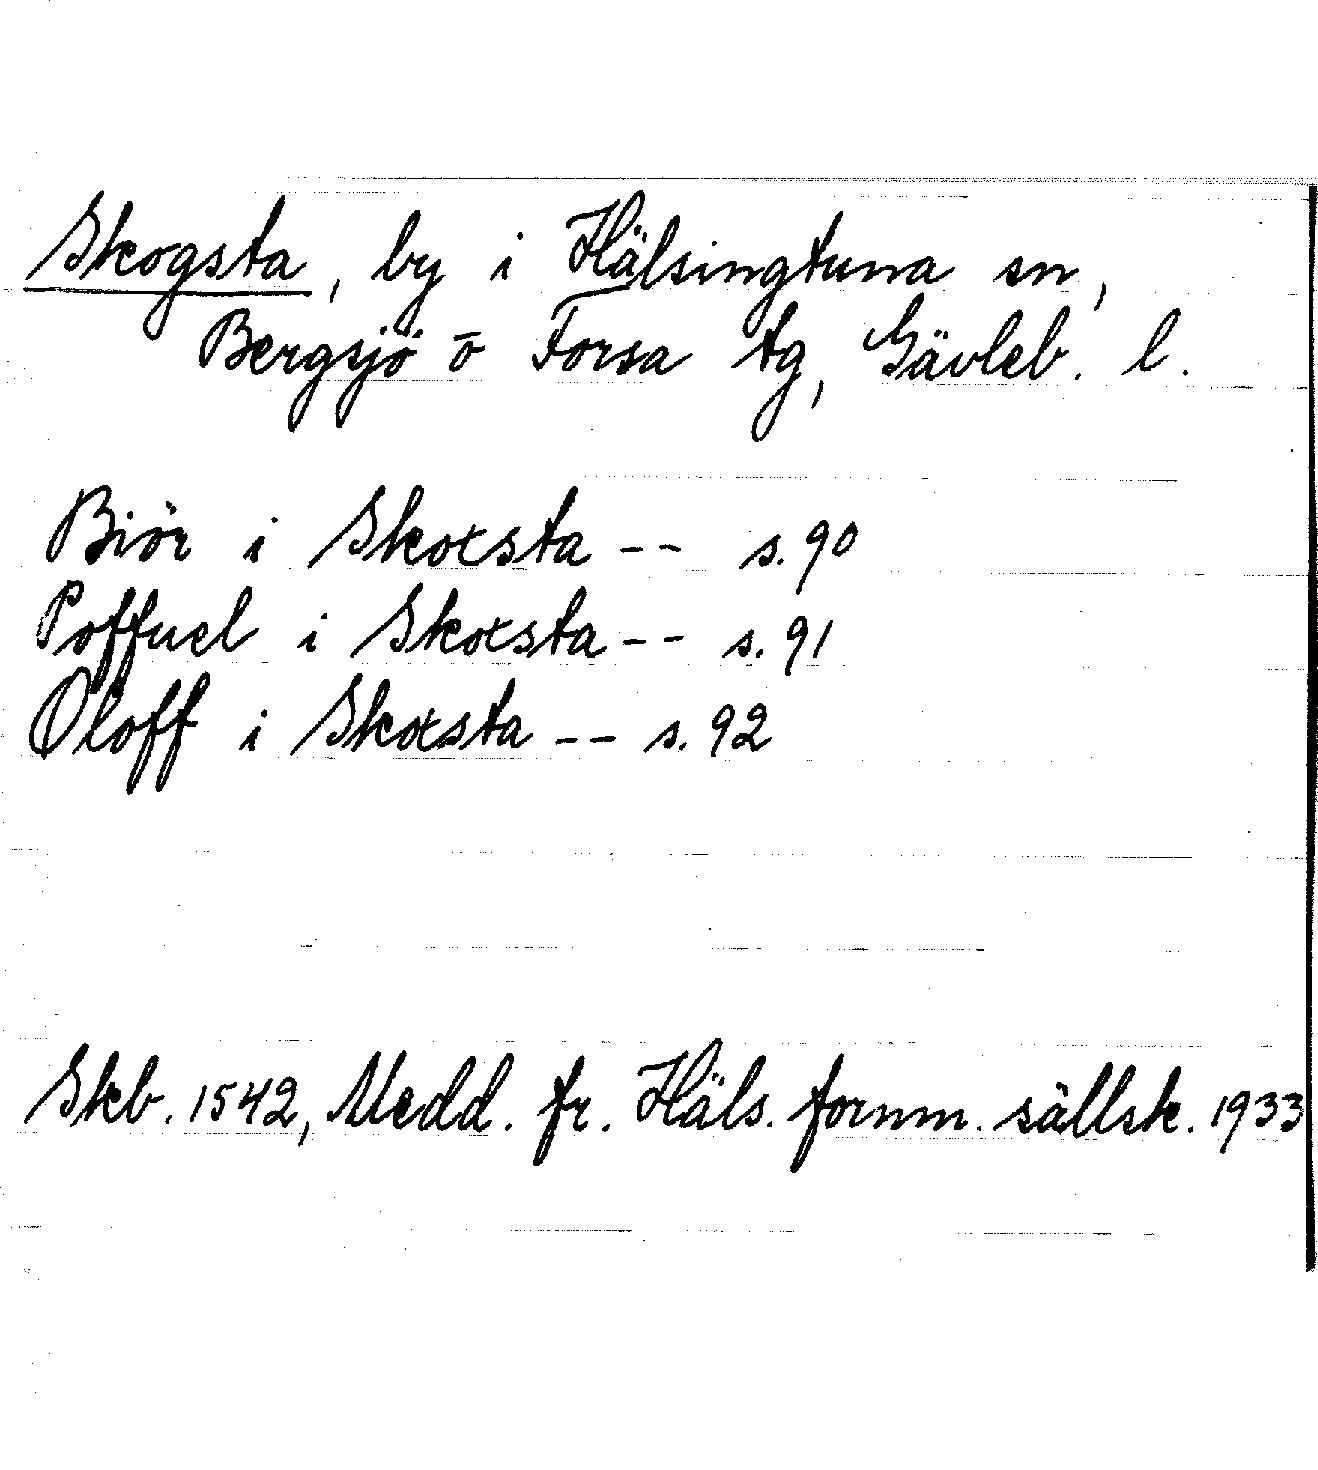 Skogsta, by i Hälsingtuna sn,
Bergsjö o Forsa tg, Gävleb. l.
Biör i Skoxsta -- s. 90
Poffuel i Skoxsta -- s. 91
Oloff i Skoxsta -- s. 92
Skb. 1542, Medd. fr. Häls. fornm. sällsk. 1933